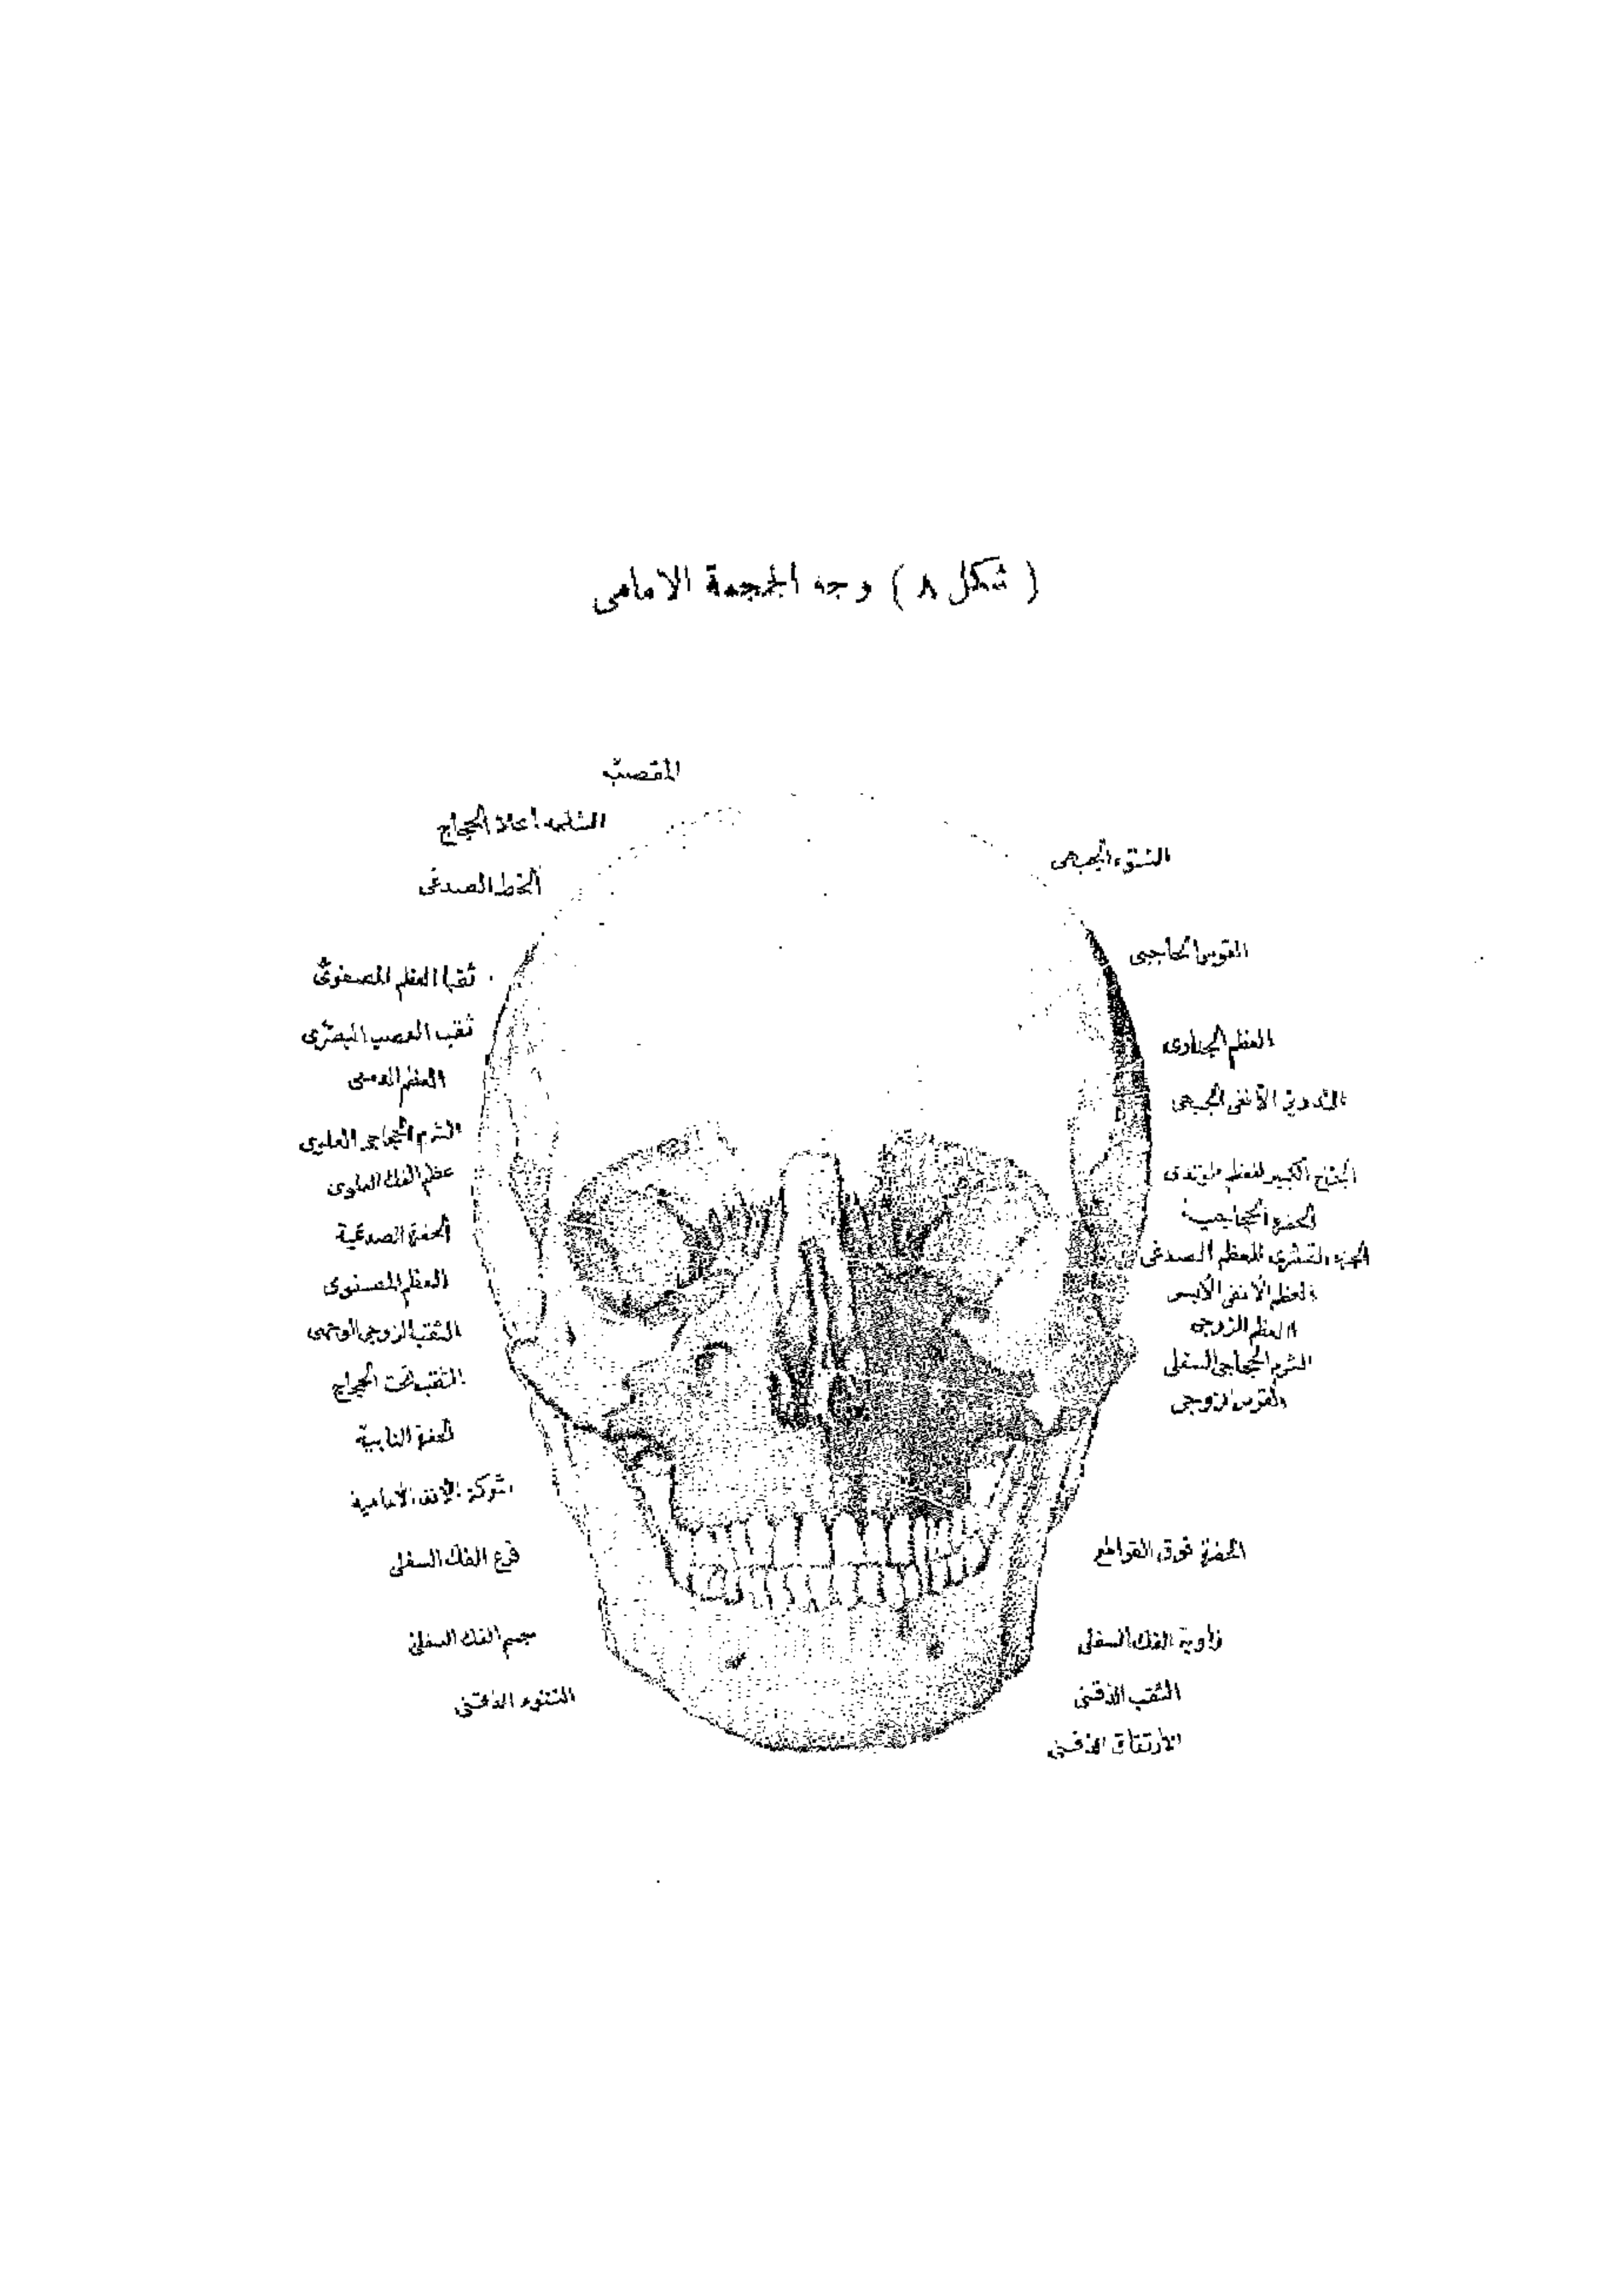 ( شكل ٨ ) وجه الجمجمة الامامى
المقصب
الثلمة أعلا الحجاج
الخط الصدغى
النتوء الجبهى
القوس الحاجبى
ثقبا العظم المصفوى
ثقب العصب البصرى
العظم الدمعى
الشرم الحجاجى العلوى
عظم الفك العلوى
الحفرة الصدغية
العظم المصفوى
الثقب الزوجى الوجهى
الثقب تحت الحجاج
الحفرة النابية
شوكة الانف الامامية
فرع الفك السفلى
جسم الفك السفلى
النتوء الذقنى
العظم الجدارى
التدريز الأنفى الجبهى
الجناح الكبير للعظم الوتدى
الحفرة الحجاجية
الجزء القشرى للعظم الصدغى
العظم الأنفى الأيسر
العظم الزوجى
الشرم الحجاجى السفلى
القوس الزوجى
الحفرة فوق القواطع
زاوية الفك السفلى
الثقب الذقنى
الارتفاق الذقنى